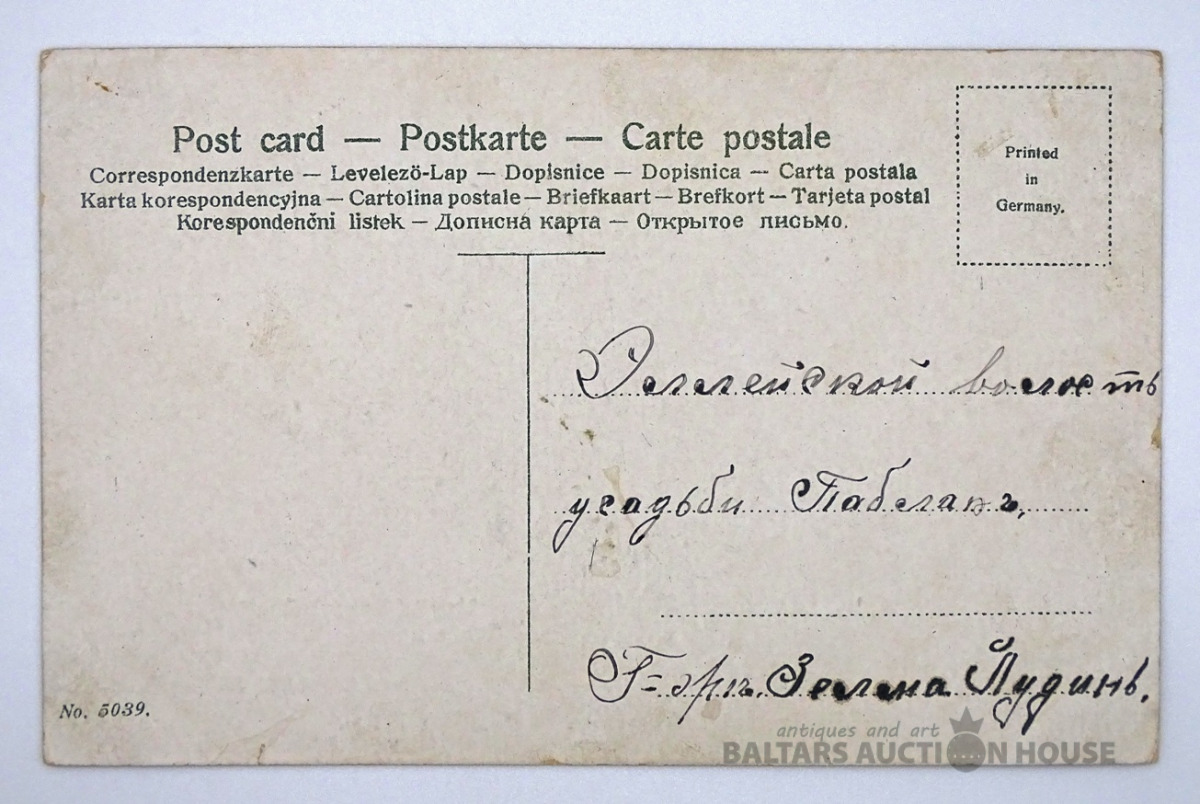 Post card — Postkarte — Carte postale
Correspondenzkarte — Levelezö-Lap — Dopisnice — Dopisnica — Carta postala
Karta korespondencyjna — Cartolina postale — Briefkaart — Brefkort — Tarjeta postal
Korespondenčni listek — Дописна карта — Открытое письмо.
Printed
in
Germany.
волость
усадьби
Зелма
No. 5039.
antiques and art
BALTARS AUCTION HOUSE